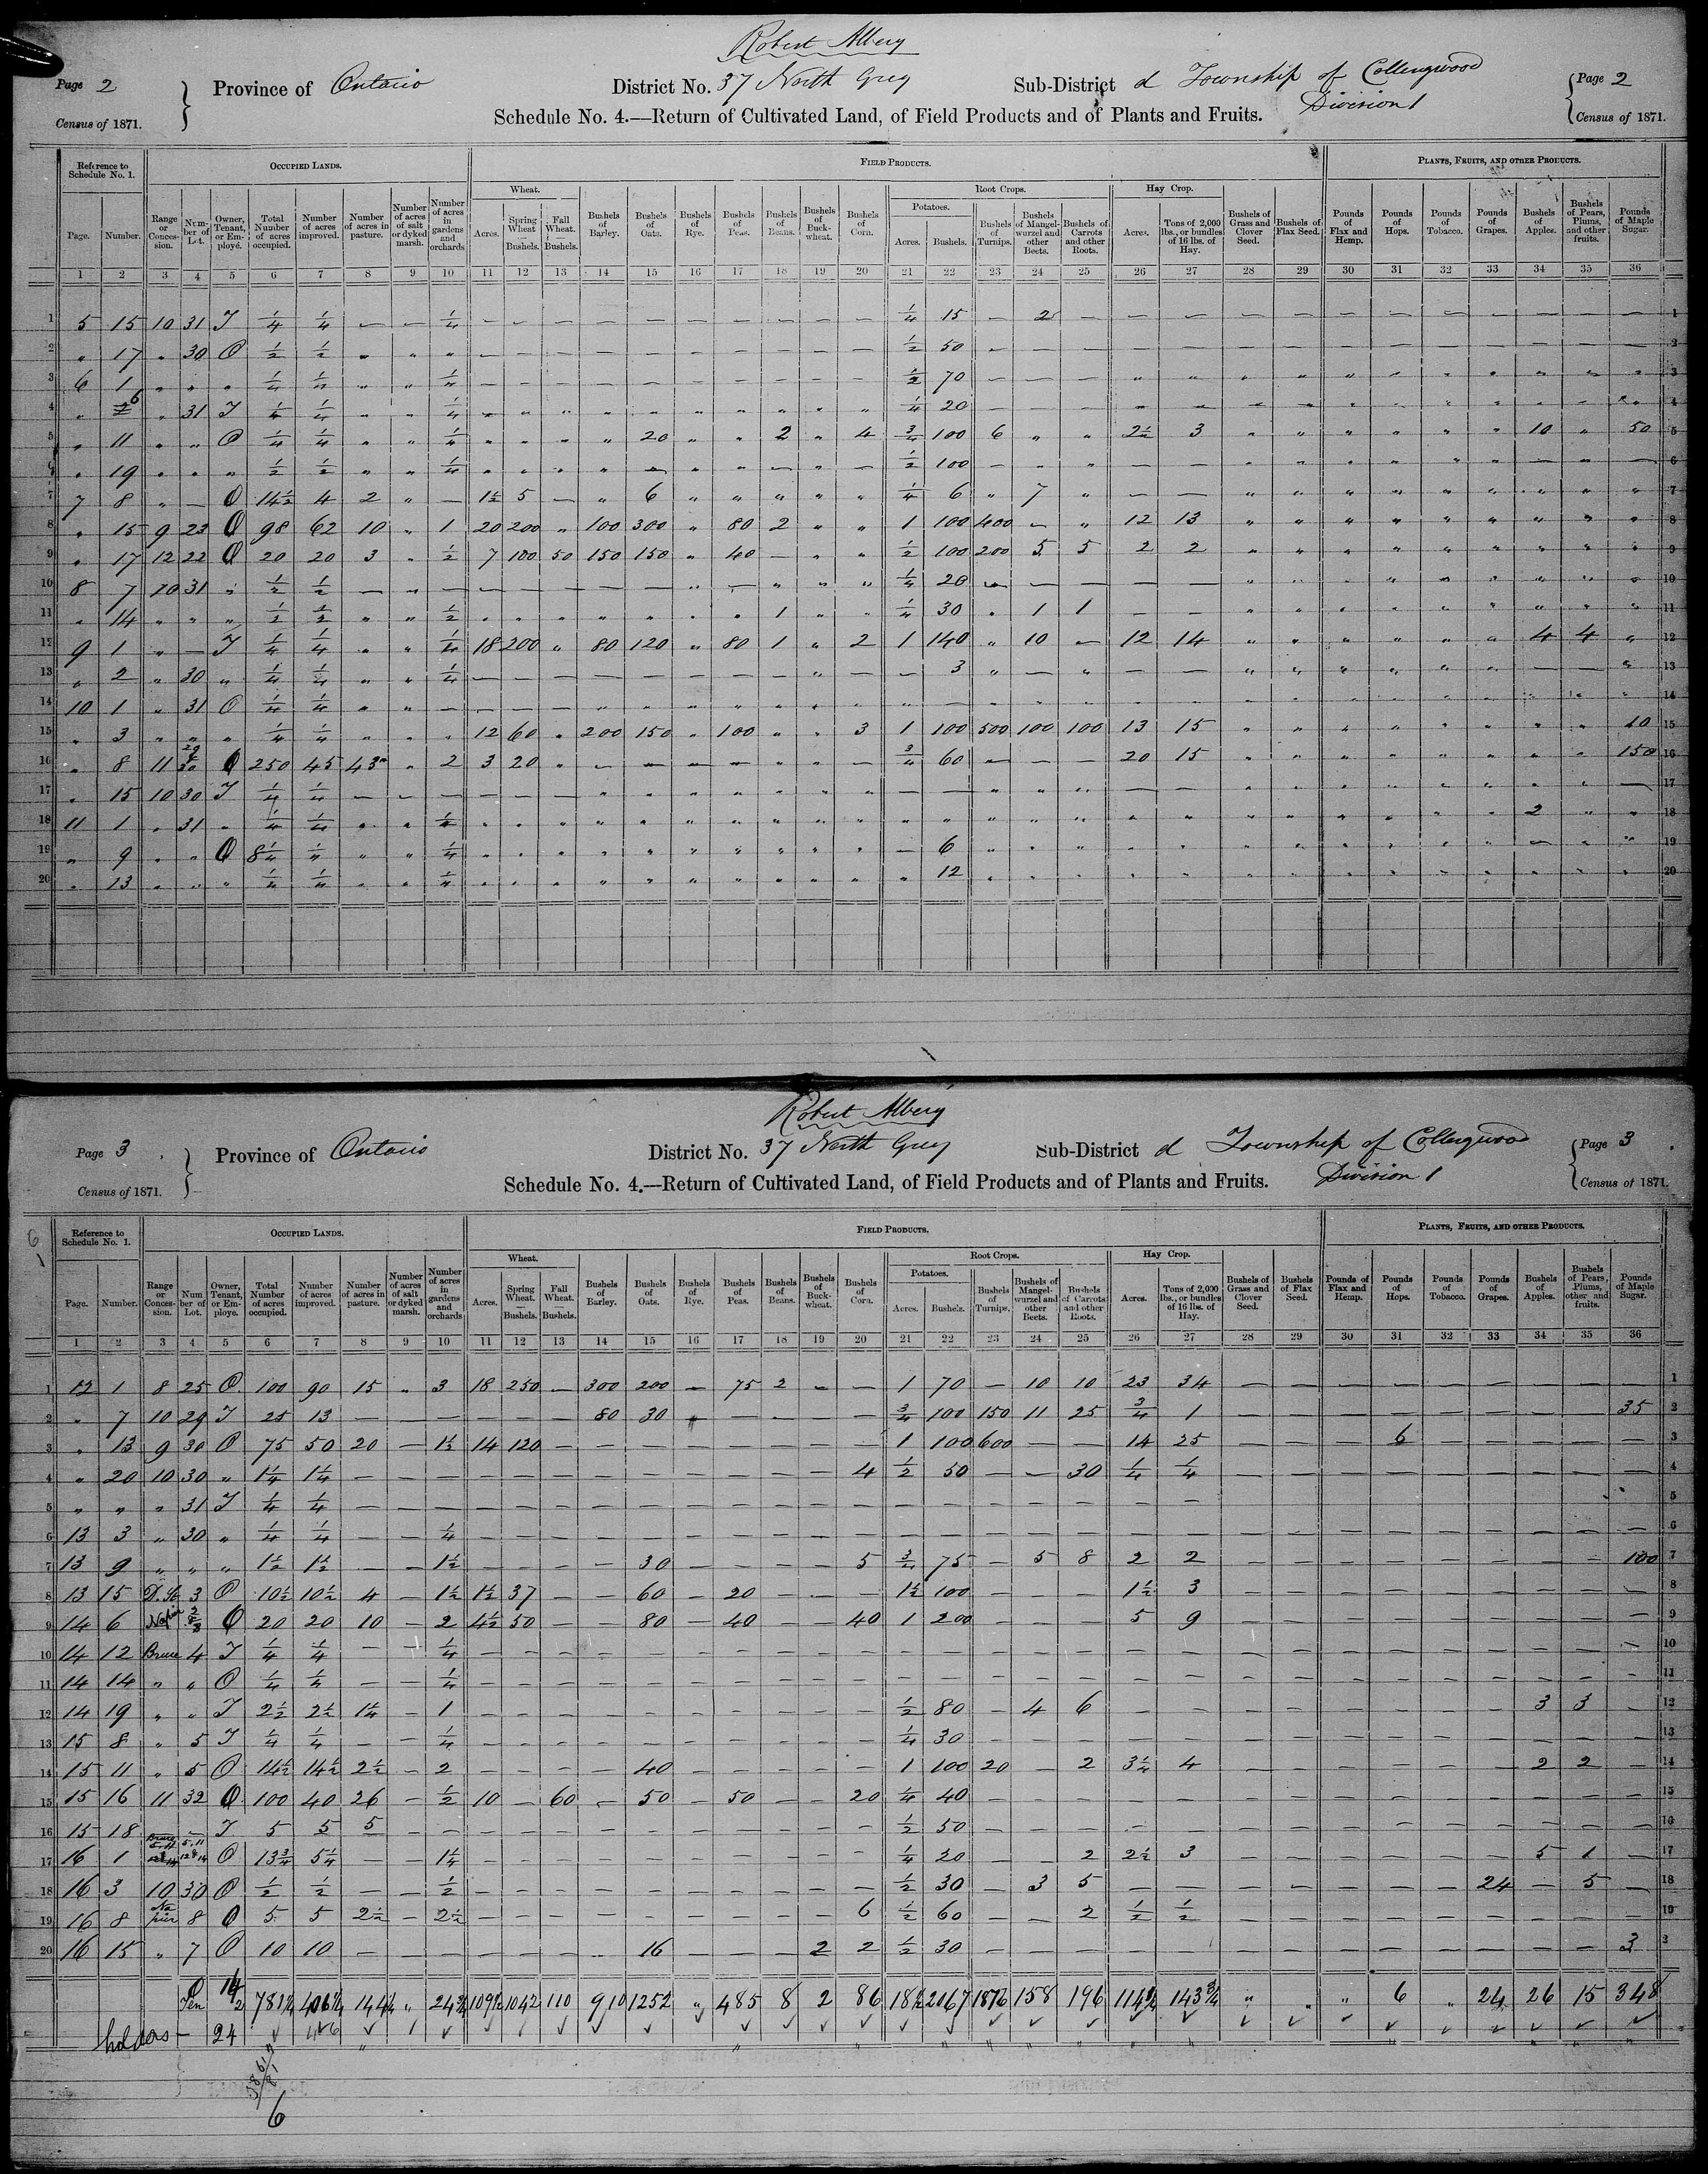 Robert Albery
Page 2 Province of Ontario District No. 37 North Grey Sub-District d Township of Collingwood Page 2
Census of 1871. Schedule No. 4.—Return of Cultivated Land, of Field Products and of Plants and Fruits. Division 1 Census of 1871.
Reference to Schedule No. 1. OCCUPIED LANDS. FIELD PRODUCTS. PLANTS, FRUITS, AND OTHER PRODUCTS.
Wheat. Root Crops. Hay Crop.
Potatoes.
Page. Number. Range or Concession. Number of Lot. Owner, Tenant, or Employé. Total Number of acres occupied. Number of acres improved. Number of acres in pasture. Number of acres of salt or dyked marsh. Number of acres in gardens and orchards Acres. Spring Wheat — Bushels. Fall Wheat. — Bushels. Bushels of Barley. Bushels of Oats. Bushels of Rye. Bushels of Peas. Bushels of Beans. Bushels of Buckwheat. Bushels of Corn. Acres. Bushels. Bushels of Turnips. Bushels of Mangel-wurzel and other Beets. Bushels of Carrots and other Roots. Acres. Tons of 2,000 lbs., or bundles of 16 lbs. of Hay. Bushels of Grass and Clover Seed. Bushels of Flax Seed. Pounds of Flax and Hemp. Pounds of Hops. Pounds of Tobacco. Pounds of Grapes. Bushels of Apples. Bushels of Pears, Plums, and other fruits. Pounds of Maple Sugar.
1 2 3 4 5 6 7 8 9 10 11 12 13 14 15 16 17 18 19 20 21 22 23 24 25 26 27 28 29 30 31 32 33 34 35 36
1 5 15 10 31 T 1/4 1/4 — — 1/4 — — — — — — — — — — 1/4 15 — 2 — — — — — — — — — — — — 1
2 " 17 " 30 O 1/2 1/2 " " " — — — — — — — — — — 1/2 50 — — — — — — — — — — — — — — 2
3 6 1 " " " 1/4 1/4 " " 1/4 — — — — — — — — — — 1/2 70 — — — " " " " " " " " " " " 3
4 " 6 " 31 T 1/4 1/4 " " 1/4 " " " " " " " " " " 1/4 20 — — — " " " " " " " " " " " 4
5 " 11 " " O 1/4 1/4 " " 1/4 " " " " 20 " " 2 " 4 3/4 100 6 " " 2 1/2 3 " " " " " " 10 " 50 5
6 " 19 " " " 1/2 1/2 " " 1/4 " " " " — " " — " — 1/2 100 — " " — — " " " " " " — — — 6
7 7 8 " — O 14 1/2 4 2 " — 1 1/2 5 — " 6 " " " " " 1/4 6 " 7 " — — " " " " " " " " " 7
8 " 15 9 23 O 98 62 10 " 1 20 200 " 100 300 " 80 2 " " 1 100 400 — " 12 13 " " " " " " " " " 8
9 " 17 12 22 O 20 20 3 " 1/2 7 100 50 150 150 " 40 — " " 1/2 100 200 5 5 2 2 " " " " " " " " " 9
10 8 7 10 31 " 1/2 1/2 — " — — — — — — " — " " " 1/4 20 — — — — — " " " " " " " " " 10
11 " 14 " " " 1/2 1/2 " " 1/2 " " " " " " " 1 " " 1/4 30 " 1 1 — — " " " " " " " " " 11
12 9 1 " — T 1/4 1/4 " " 1/4 18 200 " 80 120 " 80 1 " 2 1 140 " 10 — 12 14 " " " " " " 4 4 " 12
13 " 2 " 30 " 1/4 1/4 " " 1/4 — — — — — — — — " — — 3 " — " — — " " " " " " — — " 13
14 10 1 " 31 O 1/4 1/4 " " — — — — " " " " " " " " — " " " " " " " " " " " " " " 14
15 " 3 " " " 1/4 1/4 " " " 12 60 " 200 150 " 100 " " 3 1 100 500 100 100 13 15 " " " " " " " " 10 15
16 " 8 11 29 & 30 O 250 45 43 " 2 3 20 " — — — — " " — 3/4 60 — — — 20 15 " " " " " " " " 150 16
17 " 15 10 30 T 1/4 1/4 — — — — — — " " " " " " " — — " " " — — " " " " " " " " — 17
18 11 1 " 31 " 1/4 1/4 " " 1/4 " " " " " " " " " " " " " " " " " " " " " " " 2 " " 18
19 " 9 " " O 8 1/4 1/4 " " 1/4 " " " " " " " " " " — 6 " " " " " " " " " " " — " " 19
20 " 13 " " " 1/4 1/4 " " 1/4 " " " " " " " " " " " 12 " " " " " " " " " " " " " " 20
Robert Albery
Page 3 Province of Ontario District No. 37 North Grey Sub-District d Township of Collingwood Page 3
Census of 1871. Schedule No. 4.—Return of Cultivated Land, of Field Products and of Plants and Fruits. Division 1 Census of 1871.
Reference to Schedule No. 1. OCCUPIED LANDS. FIELD PRODUCTS. PLANTS, FRUITS, AND OTHER PRODUCTS.
Wheat. Root Crops. Hay Crop.
Potatoes.
Page. Number. Range or Concession. Number of Lot. Owner, Tenant, or Employe. Total Number of acres occupied. Number of acres improved. Number of acres in pasture. Number of acres of salt or dyked marsh. Number of acres in gardens and orchards Acres. Spring Wheat. — Bushels. Fall Wheat. — Bushels. Bushels of Barley. Bushels of Oats. Bushels of Rye. Bushels of Peas. Bushels of Beans. Bushels of Buckwheat. Bushels of Corn. Acres. Bushels. Bushels of Turnips. Bushels of Mangel-wurzel and other Beets. Bushels of Carrots and other Roots. Acres. Tons of 2,000 lbs., or bundles of 16 lbs. of Hay. Bushels of Grass and Clover Seed. Bushels of Flax Seed. Pounds of Flax and Hemp. Pounds of Hops. Pounds of Tobacco. Pounds of Grapes. Bushels of Apples. Bushels of Pears, Plums, other and fruits. Pounds of Maple Sugar.
1 2 3 4 5 6 7 8 9 10 11 12 13 14 15 16 17 18 19 20 21 22 23 24 25 26 27 28 29 30 31 32 33 34 35 36
1 12 1 8 25 O 100 90 15 " 3 18 250 — 300 200 — 75 2 — — 1 70 — 10 10 23 34 — — — — — — — — — 1
2 " 7 10 29 T 25 13 — — — — — — 80 30 " — — — — 3/4 100 150 11 25 3/4 1 — — — — — — — — 35 2
3 " 13 9 30 O 75 50 20 — 1 1/2 14 120 — — — — — — — — 1 100 600 — — 14 25 — — — 6 — — — — — 3
4 " 20 10 30 " 1 1/4 1 1/4 — — — — — — — — — — — — 4 1/2 50 — — 30 1/4 1/4 — — — — — — — — — 4
5 " " " 31 T 1/4 1/4 — — — — — — — — — — — — — — — — — — — — 5
6 13 3 " 30 " 1/4 1/4 — — 1/4 — — — — — — — — — — — — — — — — — — — — — — — — — — 6
7 13 9 " " " 1 1/2 1 1/2 — — 1 1/2 — — — — 30 — — — — 5 3/4 75 — 5 8 2 2 — — — — — — — — 100 7
8 13 15 D. St 3 O 10 1/2 10 1/2 4 — 1 1/2 1 1/2 37 — — 60 — 20 — — — 1 1/2 100 — — — 1 1/2 3 — — — — — — — — — 8
9 14 6 Napier O 20 20 10 — 2 4 1/2 50 — — 80 — 40 — — 40 1 200 — — — 5 9 — — — — — — — — — 9
10 14 12 Bruce 4 T 1/4 1/4 — — 1/4 — — — — — — — — — — — — — — — — — — — — — — — — — — 10
11 14 14 " " O 1/4 1/4 — — 1/4 — — — — — — — — — — — — — — — — — — — — — — — — — — 11
12 14 19 " " T 2 1/2 2 1/2 1 1/4 — 1 — — — — — — — — — — 1/2 80 — 4 6 — — — — — — — — 3 3 — 12
13 15 8 " 5 T 1/4 1/4 — — 1/4 — — — — — — — — — — 1/4 30 — — — — — — — — — — — — — — 13
14 15 11 " 5 O 14 1/2 14 1/2 2 1/2 — 2 — — — — 40 — — — — — 1 100 20 — 2 3 1/4 4 — — — — — — 2 2 — 14
15 15 16 11 32 O 100 40 26 — 1/2 10 — 60 — 50 — 50 — — 20 1/4 40 — — — — — — — — — — — — — — 15
16 15 18 — — T 5 5 5 — — — — — — — — — — — — 1/2 50 — — — — — — — — — — — — — — 16
17 16 1 Bruce 5.11 O 13 3/4 5 1/4 — — 1 1/4 — — — — — — — — — — 1/4 20 — — 2 2 1/2 3 — — — — — — 5 1 — 17
18 16 3 10 30 O 1/2 1/2 — — 1/2 — — — — — — — — — — 1/2 30 — 3 5 — — — — — — — 24 — 5 — 18
19 16 8 Napier 8 O 5 5 2 1/2 — 2 1/2 — — — — — — — — — 6 1/2 60 — — 2 1/2 1/2 — — — — — — — — — 19
20 16 15 " 7 O 10 10 — — — — — — — 16 — — — 2 2 1/2 30 — — — — — — — — — — — — — 3
O 14
Ten 2 781 1/4 406 1/4 144 1/4 " 24 3/4 109 1/2 1042 110 910 1252 " 485 8 2 86 18 1/2 2167 1876 158 196 114 3/4 143 3/4 " " " 6 " 24 26 15 348
holders — 24
6